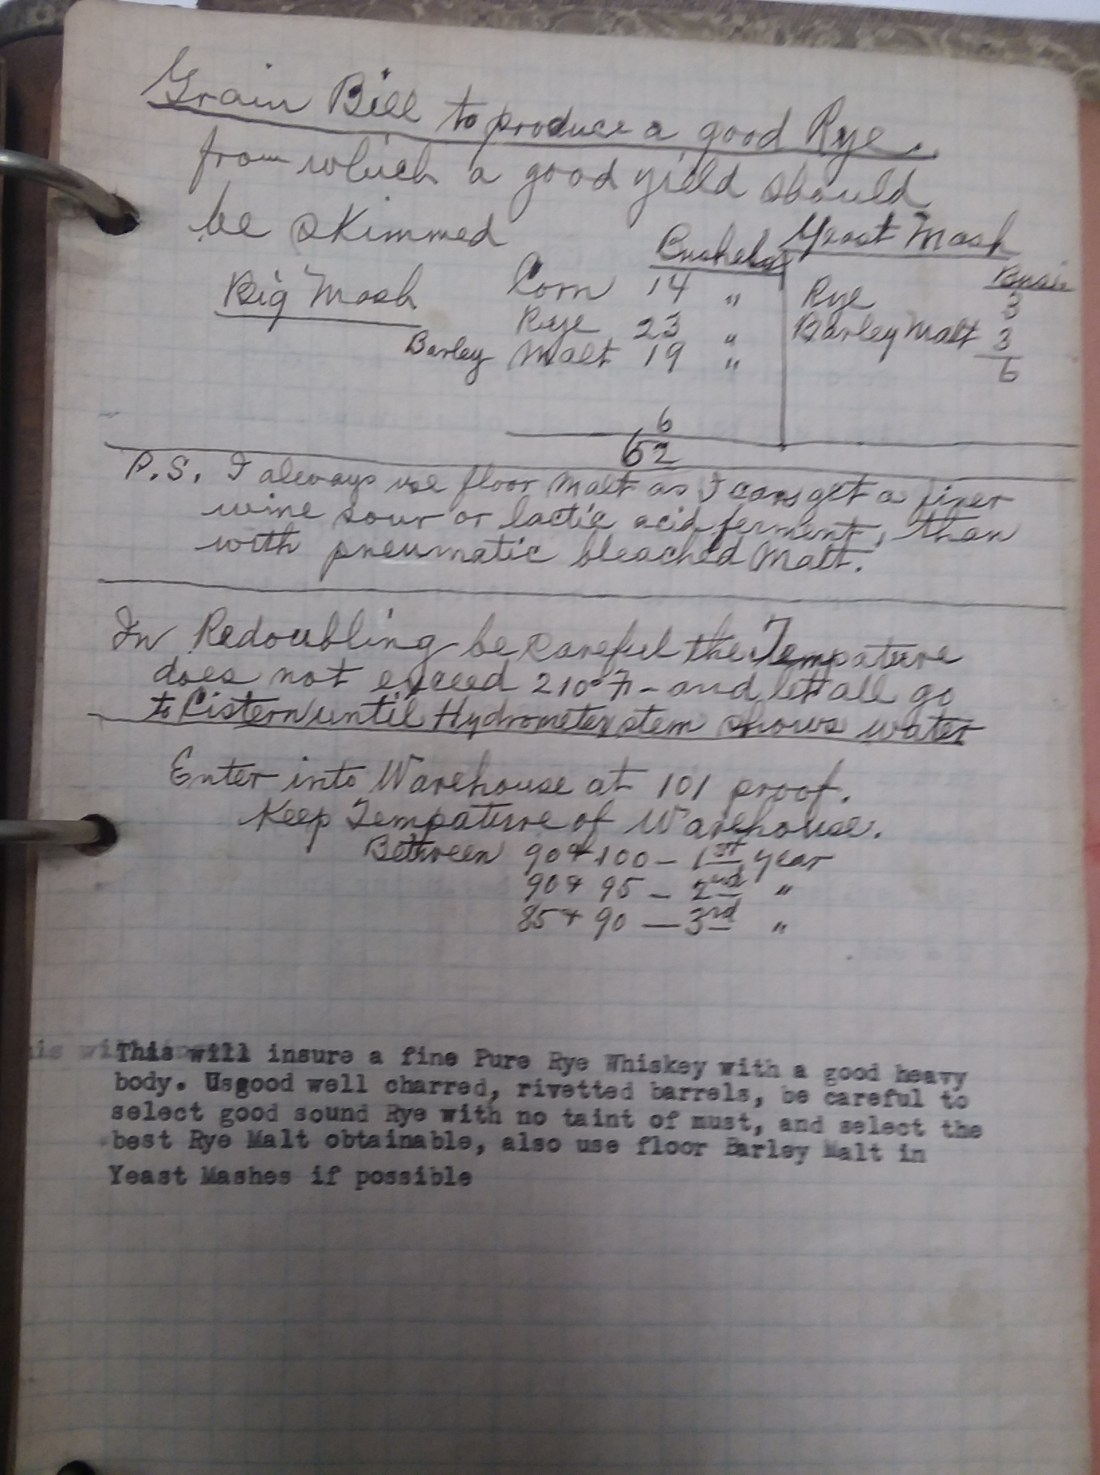 Grain Bill to produce a good Rye.
from which a good yield should
be skimmed
Bushels Yeast Mash
Big Mash Corn 14 " Rye 3
Rye 23 " Barley Malt 3
Barley Malt 19 " 6
6
62
P.S. I always use floor Malt as I can get a finer
wine sour or lactic acid ferment, than
with pneumatic bleached Malt.
In Redoubling be careful the Tempature
does not exceed 210° F - and let all go
to Cistern until Hydrometer stem shows water
Enter into Warehouse at 101 proof.
Keep Tempature of Warehouse.
Between 90 & 100 - 1st year
90 & 95 - 2nd "
85 & 90 - 3rd "
This will insure a fine Pure Rye Whiskey with a good heavy
body. Usgood well charred, rivetted barrels, be careful to
select good sound Rye with no taint of must, and select the
best Rye Malt obtainable, also use floor Barley Malt in
Yeast Mashes if possible